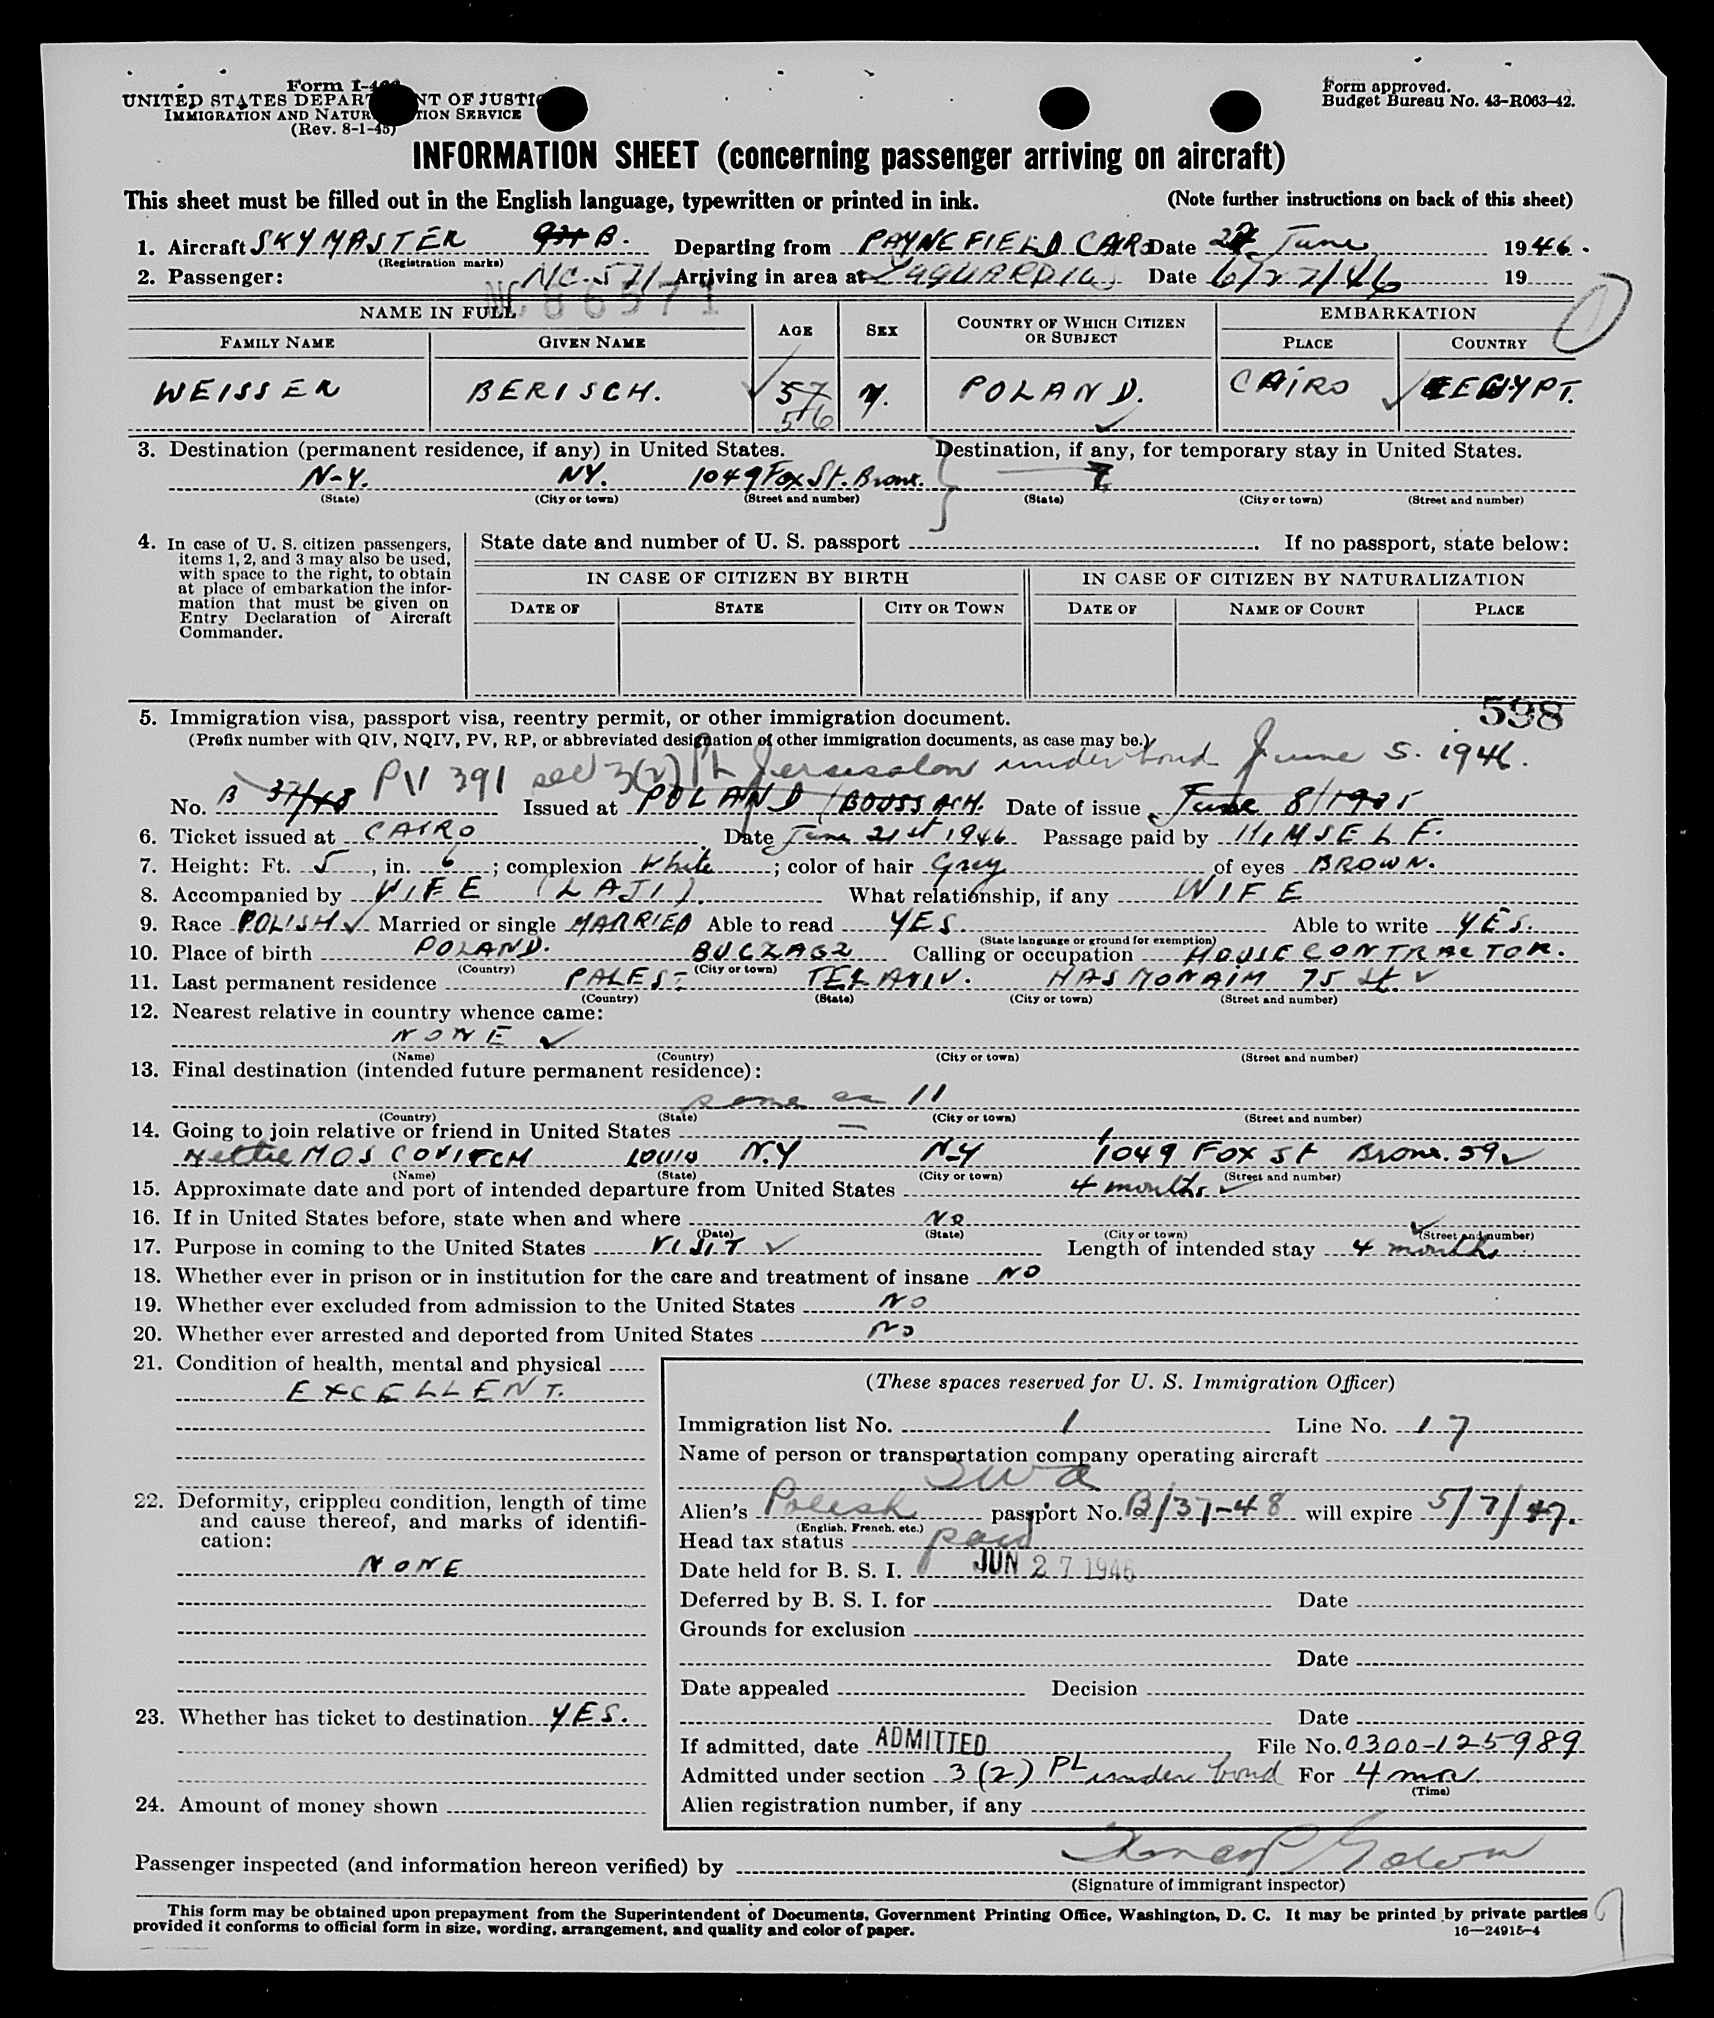 Form I-4
UNITED STATES DEPAR NT OF JUSTI
IMMIGRATION AND NATUR TION SERVICE
(Rev. 8-1-45)
Form approved.
Budget Bureau No. 43-R063-42.
INFORMATION SHEET (concerning passenger arriving on aircraft)
This sheet must be filled out in the English language, typewritten or printed in ink. (Note further instructions on back of this sheet)
1. Aircraft SKYMASTER B. Departing from PAYNE FIELD CAIRO Date June 1946.
(Registration marks)
2. Passenger: NC-571 Arriving in area at LaGUARDIA Date 6/27/46 19
NC 86571
NAME IN FULL AGE SEX COUNTRY OF WHICH CITIZEN OR SUBJECT EMBARKATION
FAMILY NAME GIVEN NAME PLACE COUNTRY
WEISSER BERISCH. 57 M. POLAND. CAIRO EGYPT.
56
3. Destination (permanent residence, if any) in United States. Destination, if any, for temporary stay in United States.
N-Y. NY. 1049 Fox St. Bronx.
(State) (City or town) (Street and number) (State) (City or town) (Street and number)
4. In case of U. S. citizen passengers, items 1, 2, and 3 may also be used, with space to the right, to obtain at place of embarkation the information that must be given on Entry Declaration of Aircraft Commander.
State date and number of U. S. passport . If no passport, state below:
IN CASE OF CITIZEN BY BIRTH IN CASE OF CITIZEN BY NATURALIZATION
DATE OF STATE CITY OR TOWN DATE OF NAME OF COURT PLACE
598
5. Immigration visa, passport visa, reentry permit, or other immigration document.
(Prefix number with QIV, NQIV, PV, RP, or abbreviated designation of other immigration documents, as case may be.)
PV 391 sec 3(2) PL Jerusalem under bond June 5. 1946.
No. B 37/48 Issued at POLAND Date of issue June 8/1935
6. Ticket issued at CAIRO Date June 21st 1946 Passage paid by HIMSELF.
7. Height: Ft. 5, in. 6; complexion White; color of hair Grey of eyes BROWN.
8. Accompanied by WIFE (LAJI). What relationship, if any WIFE
9. Race POLISH Married or single MARRIED Able to read YES. Able to write YES.
(State language or ground for exemption)
10. Place of birth POLAND. BUCZACZ Calling or occupation HOUSE CONTRACTOR.
(Country) (City or town)
11. Last permanent residence PALES- TEL AVIV. HASMONAIM 75 St.
(Country) (State) (City or town) (Street and number)
12. Nearest relative in country whence came:
NONE
(Name) (Country) (City or town) (Street and number)
13. Final destination (intended future permanent residence):
same as 11
(Country) (State) (City or town) (Street and number)
14. Going to join relative or friend in United States —
Nettie MOSCOVITCH N.Y N-Y 1049 FOX St Bronx. 59
(Name) (State) (City or town) (Street and number)
15. Approximate date and port of intended departure from United States 4 months
16. If in United States before, state when and where NO
(Date) (State) (City or town) (Street and number)
17. Purpose in coming to the United States VISIT Length of intended stay 4 months
18. Whether ever in prison or in institution for the care and treatment of insane NO
19. Whether ever excluded from admission to the United States NO
20. Whether ever arrested and deported from United States NO
21. Condition of health, mental and physical
EXCELLENT.
22. Deformity, crippled condition, length of time and cause thereof, and marks of identification:
NONE
23. Whether has ticket to destination YES.
24. Amount of money shown
(These spaces reserved for U. S. Immigration Officer)
Immigration list No. 1 Line No. 17
Name of person or transportation company operating aircraft
TWA
Alien's Polish passport No. B/37-48 will expire 5/7/47.
(English, French, etc.)
Head tax status paid
Date held for B. S. I. JUN 27 1946
Deferred by B. S. I. for Date
Grounds for exclusion
Date
Date appealed Decision
Date
If admitted, date ADMITTED File No. 0300-125989
Admitted under section 3(2) PL under bond For 4 mos.
(Time)
Alien registration number, if any
Passenger inspected (and information hereon verified) by
(Signature of immigrant inspector)
This form may be obtained upon prepayment from the Superintendent of Documents, Government Printing Office, Washington, D. C. It may be printed by private parties
provided it conforms to official form in size, wording, arrangement, and quality and color of paper. 16—24915-4